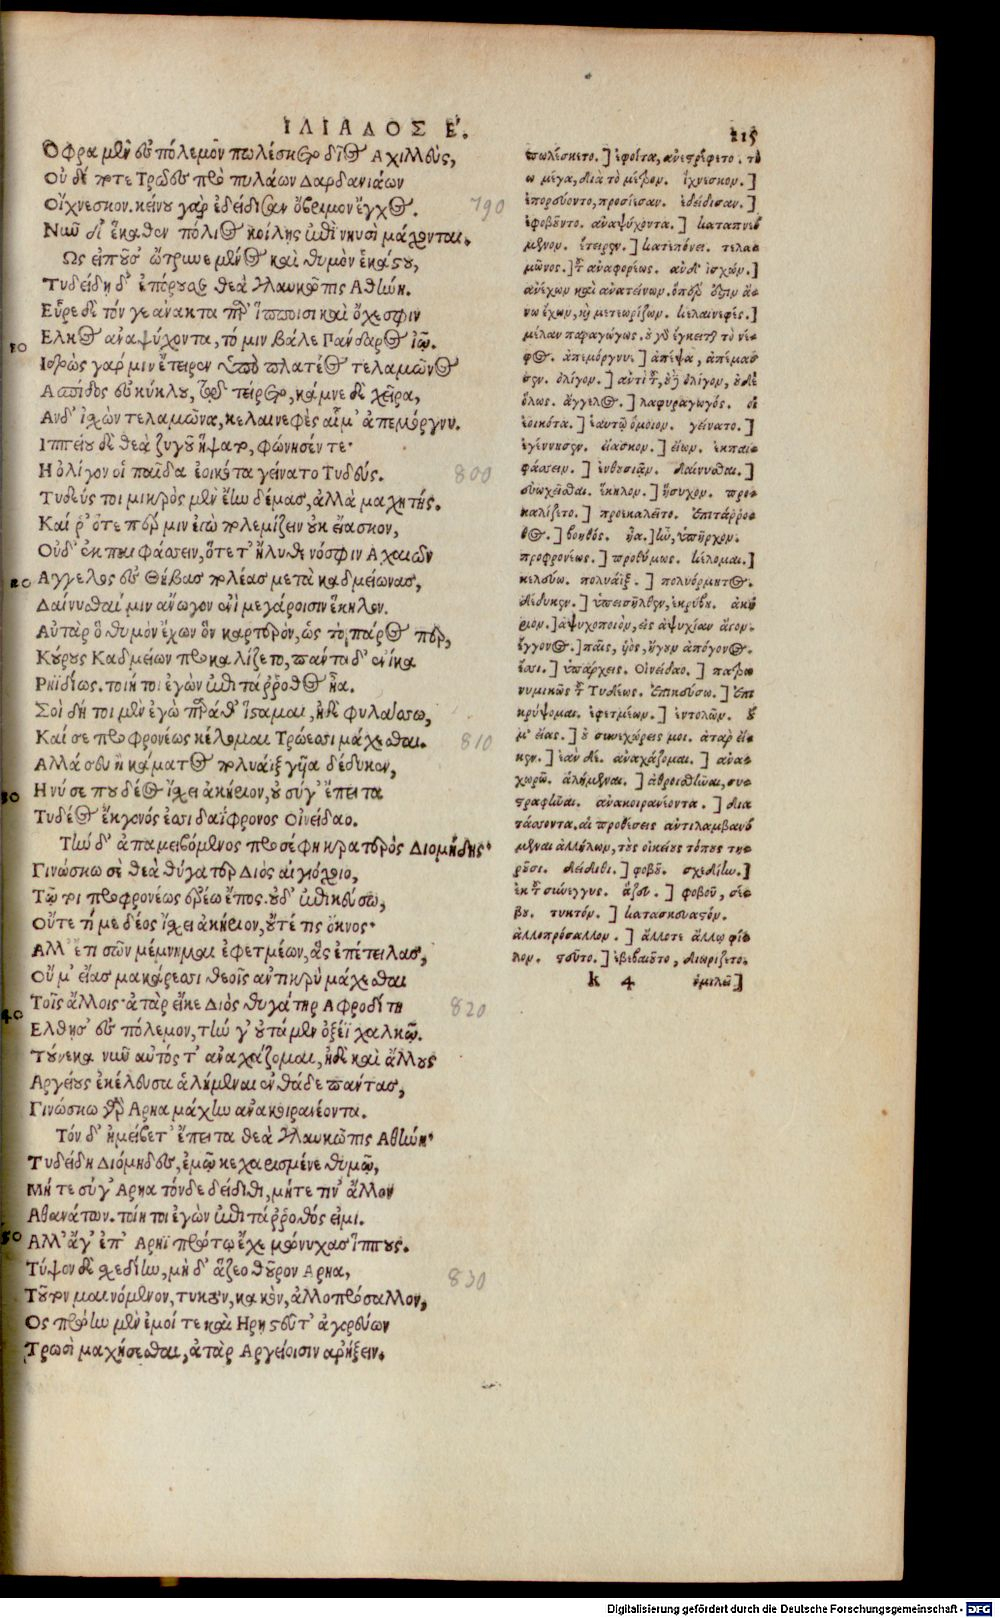 ΙΛΙΑΔΟΣ Ε.
215
Οφρα μὲν ἐς πόλεμον πωλέσκετο δῖος Αχιλλεὺς,
Οὐ δέ ποτε Τρῶες πρὸ πυλάων Δαρδανιάων
Οἴχνεσκον. κείνου γὰρ ἐδείδισαν ὄβριμον ἔγχος.
790
Νῦν δὲ ἕκαθεν πόλιος κοίλης ἐπὶ νηυσὶ μάχονται.
Ως εἰποῦσ' ὤτρυνε μένος καὶ θυμὸν ἑκάστου,
Τυδείδῃ δ' ἐπόρουσε θεὰ γλαυκῶπις Αθήνη.
Εὗρε δὲ τόν γε ἄνακτα παρ' ἵπποισι καὶ ὄχεσφιν
10
Ελκος αναψύχοντα, τό μιν βάλε Πάνδαρος ἰῷ.
Ιδρὼς γάρ μιν ἔτειρεν ὑπὸ πλατέος τελαμῶνος
Ασπίδος εὐκύκλου, τῷ τείρετο, κάμνε δὲ χεῖρα,
Ανδ' ἴσχων τελαμῶνα, κελαινεφὲς αἷμ' ἀπεμόργνυ.
Ιππείου δὲ θεὰ ζυγοῦ ἥψατο, φώνησέν τε·
Η ὀλίγον οἷ παῖδα ἐοικότα γείνατο Τυδεύς.
800
Τυδεύς τοι μικρὸς μὲν ἔην δέμας, ἀλλὰ μαχητής.
Καί ῥ' ὅτε πέρ μιν ἐγὼ πολεμίζειν οὐκ εἴασκον,
Οὐδ' ἐκπαιφάσσειν, ὅτε τ' ἤλυθε νόσφιν Αχαιῶν
20
Αγγελος ἐς Θήβας πολέας μετὰ καδμείωνας,
Δαίνυσθαί μιν ἄνωγον ἐνὶ μεγάροισιν ἕκηλον.
Αὐτὰρ ὁ θυμὸν ἔχων ὃν καρτερὸν, ὡς τὸ πάρος περ,
Κούρους Καδμείων προκαλίζετο, πάντα δ' ἐνίκα
Ρηϊδίως. τοίη τοι ἐγὼν ἐπιτάρροθος ἦα.
Σοὶ δή τοι μὲν ἐγὼ παρά θ' ἵσταμαι, ἠδὲ φυλάσσω,
Καί σε προφρονέως κέλομαι Τρώεσσι μάχεσθαι.
810
Αλλά σευ ἢ κάματος πολυάιξ γυῖα δέδυκεν,
30
Η νύ σε που δέος ἴσχει ἀκήριον, οὐ σύγ' ἔπειτα
Τυδέος ἔκγονός ἐσσι δαΐφρονος Οἰνείδαο.
Τὴν δ' ἀπαμειβόμενος προσέφη κρατερὸς Διομήδης·
Γινώσκω σὲ θεὰ θύγατερ Διὸς αἰγιόχοιο,
Τῷ τοι προφρονέως ἐρέω ἔπος. οὐδ' ἐπικεύσω,
Οὔτε τί με δέος ἴσχει ἀκήριον, οὔτέ τις ὄκνος·
Αλλ' ἔτι σῶν μέμνημαι ἐφετμέων, ἃς ἐπέτειλας,
Οὔ μ' εἴας μακάρεσσι θεοῖς αντικρὺ μάχεσθαι
Τοῖς ἄλλοις· ἀτὰρ εἴκε Διὸς θυγάτηρ Αφροδίτη
820
40
Ελθησ' ἐς πόλεμον, τήν γ' οὐτάμεν ὀξέϊ χαλκῷ.
Τούνεκα νῦν αὐτός τ' αναχάζομαι, ἠδὲ καὶ ἄλλους
Αργείους ἐκέλευσα ἀλήμεναι ἐνθάδε πάντας,
Γινώσκω γὰρ Αρηα μάχην ανακοιρανέοντα.
Τόν δ' ἠμείβετ' ἔπειτα θεὰ γλαυκῶπις Αθήνη·
Τυδείδη Διόμηδες, ἐμῷ κεχαρισμένε θυμῷ,
Μή τε σύγ' Αρηα τόνδε δείδιθι, μήτε τιν' ἄλλον
Αθανάτων. τοίη τοι ἐγὼν ἐπιτάρροθός εἰμι.
50
Αλλ' ἄγ' ἐπ' Αρηϊ πρώτῳ ἔχε μώνυχας ἵππους.
Τύψον δὲ σχεδίην, μὴ δ' ἅζεο θοῦρον Αρηα,
830
Τοῦτον μαινόμενον, τυκτὸν, κακὸν, ἀλλοπρόσαλλον,
Ος πρώην μὲν ἐμοί τε καὶ Ηρῃ στεῦτ' ἀγορεύων
Τρωσὶ μαχήσεσθαι, ἀτὰρ Αργείοισιν αρήξειν.
πωλέσκετο.] ἐφοίτα, ανεστρέφετο. τὸ
ω μέγα, διὰ τὸ μέτρον. οἴχνεσκον.]
ἐπορεύοντο, προσίεσαν. ἐδείδισαν.]
ἐφοβοῦντο. αναψύχοντα.] καταπνεό
μενον. ἔτειρεν.] κατεπόνει. τελα-
μῶνος.] τ αναφορέως. ανδ' ἰσχων.]
ανέχων καὶ ανατείνων. ὅπερ ἐστιν ἄ-
νω ἔχων, καὶ μετεωρίζων. κελαινεφές.]
μέλαν παραγώγως. οὐ γὰρ ἔγκειται τὸ νέ-
φος. ἀπεμόργνυ.] ἀπέψα, ἀπέμασ
σεν. ὀλίγον.] αντὶ τ, οὐκ ὀλίγον, οὐδὲ
ὅλως. ἄγγελος.] λαφυραγωγός. οἱ
ἐοικότα.] ἑαυτῷ ὅμοιον. γείνατο.]
ἐγέννησεν. εἴασκον.] εἴων. ἐκπαι-
φάσσειν.] ἐνθουσιᾷν. δαίνυσθαι.]
εὐωχεῖσθαι. ἕκηλον.] ἥσυχον. προ-
καλίζετο.] προεκαλεῖτο. ἐπιτάρρο-
θος.] βοηθός. ἦα.] ἦν, ὑπῆρχον.
προφρονέως.] προθύμως. κέλομαι.]
κελεύω. πολυάϊξ.] πολυόρμητος.
δέδυκεν.] ὑπεισῆλθεν, ἐκρύβη. ἀκή
ριον.] ἀψυχοποιὸν, εἰς ἀψυχίαν ἄγον.
ἔγγονος.] παῖς, υἱὸς, ἤγουν ἀπόγονος.
ἔσσι.] ὑπάρχεις. Οἰνείδαο.] πατρω
νυμικῶς τ Τυδέως. ἐπικεύσω.] ἐπι
κρύψομαι. ἐφετμέων.] ἐντολῶν. οὔ
μ' εἴας.] οὐ συνεχώρεις μοι. ἀτὰρ εἴ-
κεν.] ἐὰν δέ. αναχάζομαι.] ανα-
χωρῶ. ἀλήμεναι.] ἀθροισθῆναι, συ-
στραφῆναι. ανακοιρανέοντα.] δια
τάσσοντα. αἱ προθέσεις αντιλαμβανό
μεναι ἀλλήλων, τοὺς οἰκείους τόπους τη-
ροῦσι. δείδιθι.] φοβοῦ. σχεδίην.]
ἐκ τ σύνεγγυς. ἅζευ.] φοβοῦ, σέ-
βου. τυκτόν.] κατασκευαστόν.
ἀλλοπρόσαλλον.] ἄλλοτε ἄλλῳ φί-
λον. στεῦτο.] ἐβεβαιοῦτο, διωρίζετο.
k 4 ὁμιλῶ]
Digitalisierung gefördert durch die Deutsche Forschungsgemeinschaft - DFG